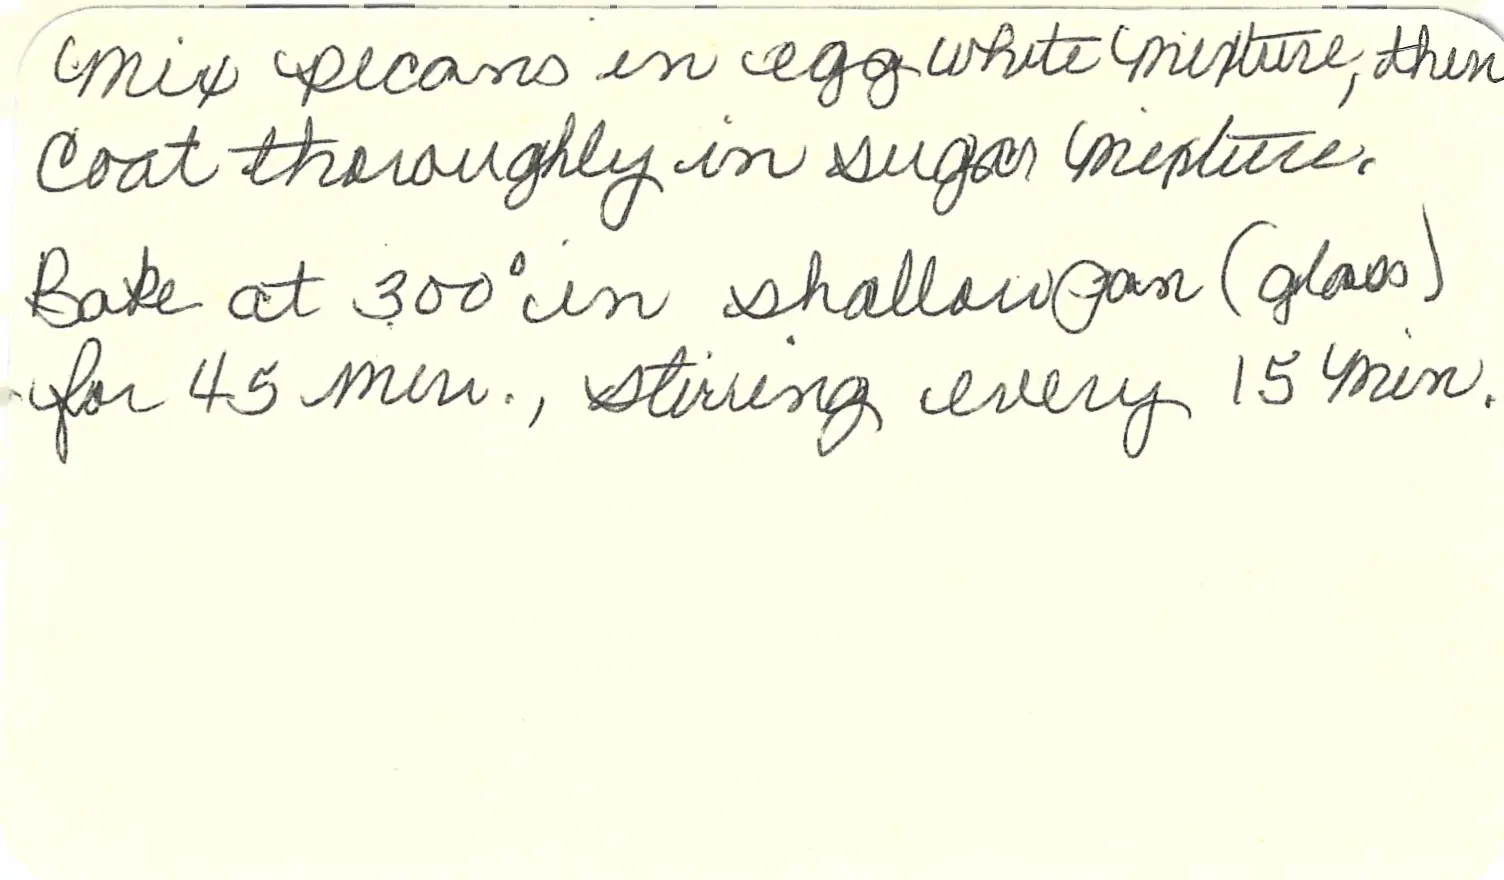 Mix pecans in egg white mixture, then
Coat thoroughly in sugar mixture.
Bake at 300° in shallow pan (glass)
for 45 min., stirring every 15 min.